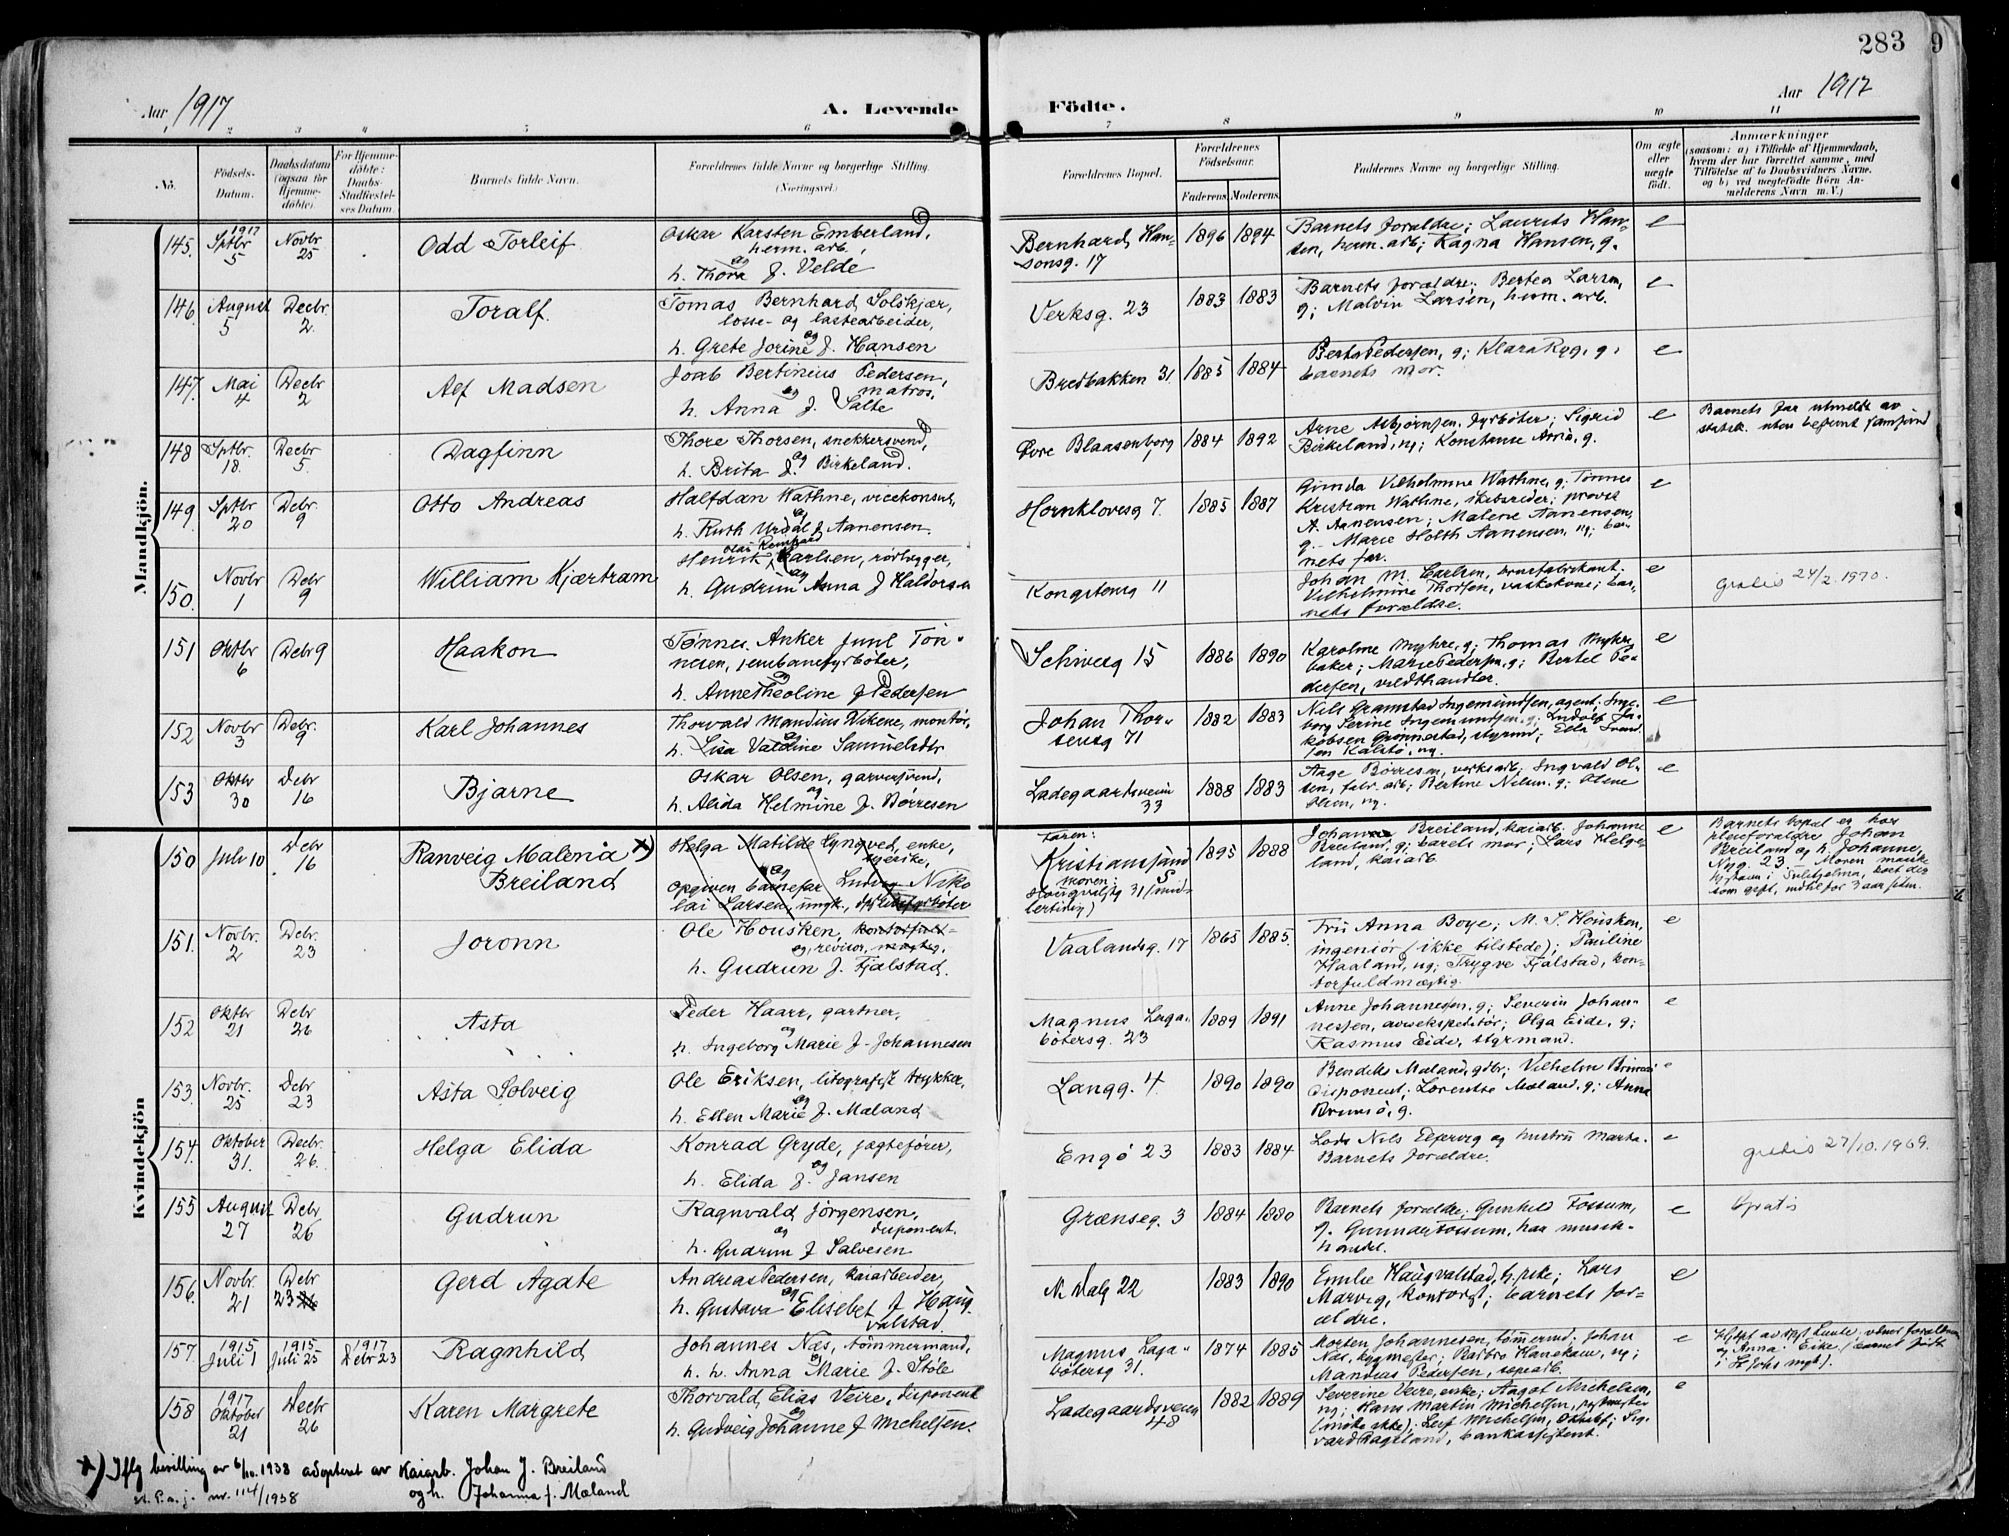 283
9
Aar 1917
A. Levende
Födte.
Aar 1917
2 3 4 5 6 7 8 9 10 11
No.
Födsels-
Datum.
Daabsdatum
(ogsaa for
Hjemme-
döbte).
For Hjemme-
döbte:
Daabs-
Stadfæstel-
ses Datum.
Barnets fulde Navn.
Forældrenes fulde Navne og borgerlige Stilling.
(Næringsvei.)
Forældrenes Bopæl.
Forældrenes
Födselsaar.
Faderens. Moderens.
Faddernes Navne og borgerlige Stilling.
Om ægte
eller
uægte
födt.
Anmærkninger
(saasom: a) i Tilfælde af Hjemmedaab,
hvem der har forrettet samme, med
Tilföielse af to Daabsvidners Navne.
og b) ved uægtefödte Börn An-
melderens Navn m.V.)
Mandkjön.
145. 1917 Sptbr 5 Novbr 25 Odd Torleif
Oskar Karsten Emberland,
herm. arb,
og
h. Thora f. Velde
Bernhard Han-
sensg. 17
1896 1894
Barnets forældre; Laurits Han-
sen, herm. arb; Ragna Hansen, g.
e
146. August 5 Decbr. 2 Toralf.
Tomas Bernhard Solskjær,
losse- og lastearbeider,
og
h. Grete Jorine f. Hansen
Verksg. 23
1883 1883
Barnets forældre; Bertea Larsen,
g; Malvin Larsen, herm. arb.
e
147. Mai 4 Decbr 2 Alf Madsen
Joab Bertinius Pedersen,
matros,
og
h. Anna f. Salte
Bredbakken 31.
1885 1884
Berta Pedersen, g; Klara Ryg, g;
barnets mor.
e
148 Sptbr. 18. Decbr 5. Dagfinn
Thore Thorsen, snekkersvend,
og
h. Brita f. Birkeland.
Øvre Blaasenborg
1884 1892
Arne Asbjørnsen, fyrbøter; Sigrid
Birkeland, ug; Konstanse Arna, g.
e
Barnets far utmeldt av
statsk. uten bestemt samfund
149. Sptbr 20 Debr. 9 Otto Andreas
Halfdan Wathne, vicekonsul,
og
h. Ruth Urdal f Aanensen.
Hornklovesg 7.
1885 1887
Gunda Vilhelmine Wathne, g; Tønnes
Kristian Wathne, skibsreder; provst
A. Aanensen; Malene Aanensen,
g. – Marie Holth Aanensen, ug; bar-
nets far.
e
150. Novbr 1 Debr 9 William Kjærtram
Olai Reinhard
Henrik Karlsen, rørlægger,
og
h. Gudrun Anna f Haldorsen
Kongstensg 11
Johan M. Carlsen, brusfabrikant.
Vilhelmine Thorsen, vaskekone; bar-
nets forældre.
e
gratis 24/2. 1970.
151 Oktbr 6 Debr 9 Haakon
Tønnes Anker Juul Tøn-
nesen, jernbanefyrbøter,
og
h. Anne Theoline f Pedersen
Schivesg 15
1886 1890
Karoline Myhre, g; Thomas Myhre
baker; Marie Pedersen, g; Bertel Pe-
dersen, vildthandler.
e
152 Novbr 3 Debr. 9 Karl Johannes
Thorvald Mandius Vikene, montør,
og
h. Lisa Valdine Samuelsdtr
Johan Thor-
sensg 71
1882 1883
Nils Gramstad Ingemundsen, agent; Inge-
borg Serine Ingemundsen, g; Ludolf Ja-
kobsen Grønnestad, styrmd; Ella Svend-
sen Kalstø, ug.
e
153 Oktbr 30 Debr 16 Bjarne
Oskar Olsen, garversvend,
og
h. Alida Helmine f. Børresen
Ladegaardsveien
33
1888 1883
Aage Børresen, verksarb; Ingvald Ol-
sen, fabr. arb; Bertine Nilsen. g; Olene
Olsen, ug.
e
Kvindekjön
150 Juli 10 Debr 16 Ranveig Malena x)
Breiland
Helga Matilde Lyngved, enke,
tjerike,
og
Opgiven barnefar Ludvig Niko
lai Larsen, ungk.,
faren:
Kristiansund
moren: S
Haugvalstg 31 (mid-
lertidig)
1895 1888
Johan Breiland, kaiarb. Johanne
Breiland, g; barets mor; Lars Helge-
land, kaiarb
e
Barnets bopæl er hos
pleieforældre Johan
Breiland og h. Johanne,
Nyg. 23. – Moren maaske
151. Novbr. 2 Debr. 23 Joronn
Ole Housken,
og, revisor,
h. Gudrun f. Fjalstad.
Vaalandsg. 17
1865 1885.
Fru Anna Boye; M. S. Housken,
ingeniør (ikke tilstede); Pauline
Haaland, ug; Trygve Fjalstad, kon-
torfuldmægtig.
e
152 Oktbr 21 Debr 26 Asta
Peder Haarr, gartner,
og
h. Ingeborg Marie f. Johannesen
Magnus Laga-
bøtersg. 23
1889 1891
Anne Johannesen, g; Severin Johan-
nesen, avisekspeditør; Olga Eide, g;
Rasmus Eide, styrmand.
e
153. Novbr. 25 Debr 23 Asta Solveig
Ole Eriksen, litografist trykker,
og
h. Ellen Marie f. Maland
Langg. 4.
1890 1890
Bendiks Maland, gdbr; Vilhelm Brimsø
disponent; Lorentse Maland, g; Anna
Brimsø, g.
e
154. Oktober 31. Decbr. 26. Helga Elida
Konrad Gryde, jægtefører,
og
h. Elida f. Jansen
Engø 23
1883 1884
Lods Nils Espevig og hustru Marta.
Barnets forældre.
e
gratis 27/10. 1969.
155 August 27 Debr 26 Gudrun
Ragnvald Jørgensen,
og disponent.
h. Gudrun f Salvesen
Grænseg. 3
1884 1880
Barnets forældre; Gunhild Fossum,
g. Gunnar Fossum, har musik-
handel.
e
Gratis
156. Novbr. 21 Debr 23 Gerd Agate
Andreas Pedersen, kaiarbeider,
og
h. Gustava Elisebet f Haug-
valstad
N. Dalg 22
1883 1890
Emilie Haugvalstad, h.pike; Lars
Marvig, kontorist; barnets for-
ældre.
e
157. 1915 Juli 1 1915 Juli 25 1917 Debr 23 Ragnhild
Johannes Næs, tømmermand,
og
h. h. Anna Marie f. Støle
Magnus Laga-
bøtersg 31.
1874 1885
Morten Johannesen, tømmermd; Johan
Næs, byggmester; Barbro Hanekam, ug;
Mandius Pedersen, sæparb.
e
158 1917 Oktober 21 Decbr 26 Karen Margrete
Thorvald Elias Veire, disponent
og
h. Gudveig Johanne f Michelsen.
Ladegaardsveien
48
1882 1889
Severine Veire, enke; Aagot Michelsen,
ug; Hans Martin Michelsen,
(møtte ikke); Leif Michelsen, Sig-
vard Rageland, bankassistent.
e
x) Iflg bevilling av 6/10. 1938 adopteret av Kaiarb. Johan J. Breiland
og h. Johanna f. Mæland
st. P. a. j. nr. 114/1938